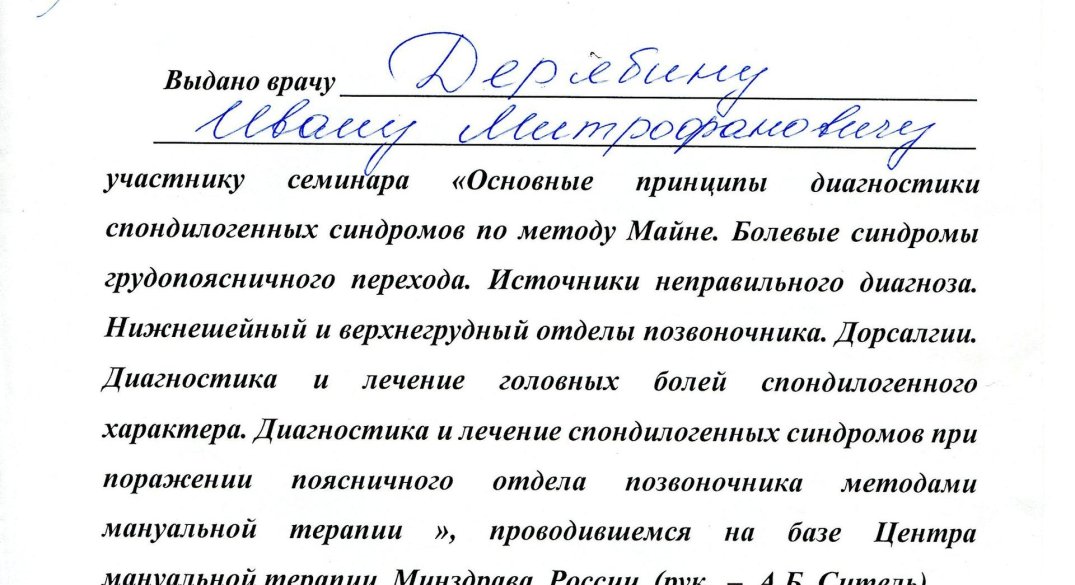 Выдано врачу Дерябину
Ивану Митрофановичу
участнику семинара «Основные принципы диагностики
спондилогенных синдромов по методу Майне. Болевые синдромы
грудопоясничного перехода. Источники неправильного диагноза.
Нижнешейный и верхнегрудный отделы позвоночника. Дорсалгии.
Диагностика и лечение головных болей спондилогенного
характера. Диагностика и лечение спондилогенных синдромов при
поражении поясничного отдела позвоночника методами
мануальной терапии », проводившемся на базе Центра
мануальной терапии Минздрава России (рук. – А.Б. Ситель)